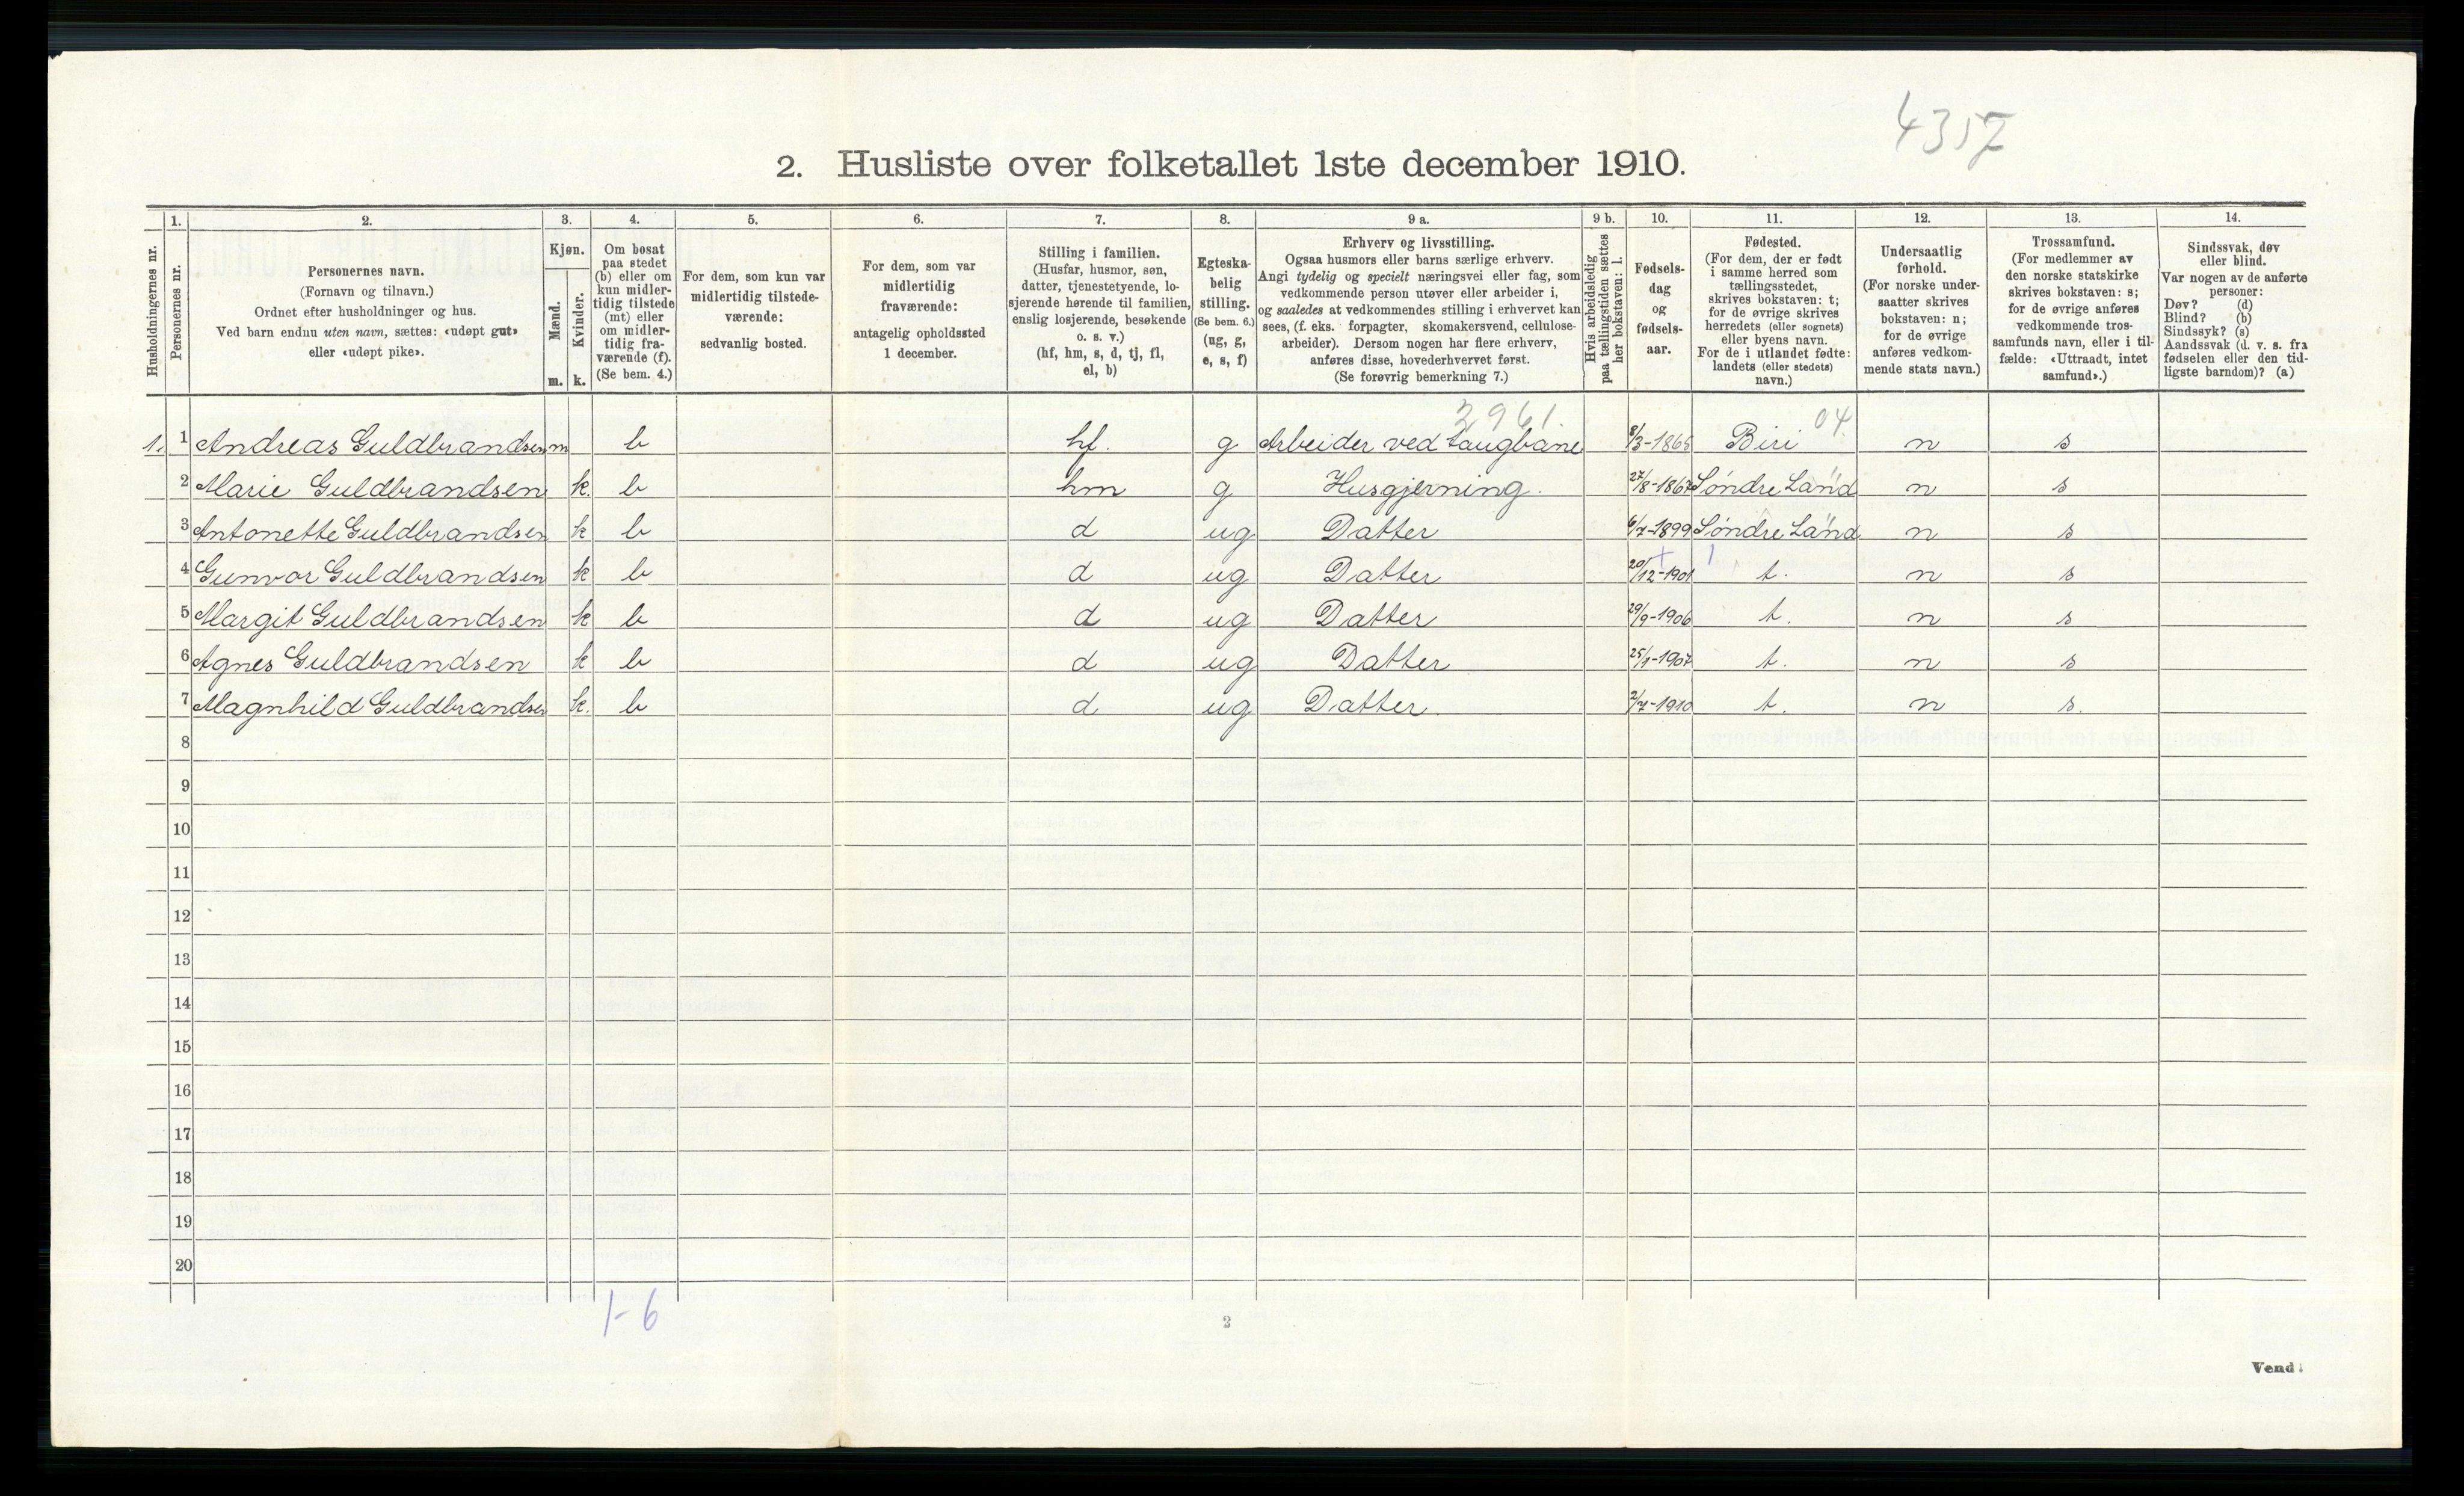 4357
2. Husliste over folketallet 1ste december 1910.
Husholdningernes nr.
1.
Personernes nr.
2.
Personernes navn.
(Fornavn og tilnavn.)
Ordnet efter husholdninger og hus.
Ved barn endnu uten navn, sættes: «udøpt gut»
eller «udøpt pike».
3.
Kjøn.
Mænd.
Kvinder.
m. k.
4.
Om bosat
paa stedet
(b) eller om
kun midler-
tidig tilstede
(mt) eller
om midler-
tidig fra-
værende (f).
(Se bem. 4.)
5.
For dem, som kun var
midlertidig tilstede-
værende:
sedvanlig bosted.
6.
For dem, som var
midlertidig
fraværende:
antagelig opholdssted
1 december.
7.
Stilling i familien.
(Husfar, husmor, søn,
datter, tjenestetyende, lo-
sjerende hørende til familien,
enslig losjerende, besøkende
o. s. v.)
(hf, hm, s, d, tj, fl,
el, b)
8.
Egteska-
belig
stilling.
(Se bem. 6.)
(ug, g,
e, s, f)
9 a.
Erhverv og livsstilling.
Ogsaa husmors eller barns særlige erhverv.
Angi tydelig og specielt næringsvei eller fag, som
vedkommende person utøver eller arbeider i,
og saaledes at vedkommendes stilling i erhvervet kan
sees, (f. eks. forpagter, skomakersvend, cellulose-
arbeider). Dersom nogen har flere erhverv,
anføres disse, hovederhvervet først.
(Se forøvrig bemerkning 7.)
9 b.
Hvis arbeidsledig
paa tællingstiden sættes
her bokstaven: l.
10.
Fødsels-
dag
og
fødsels-
aar.
11.
Fødested.
(For dem, der er født
i samme herred som
tællingsstedet,
skrives bokstaven: t;
for de øvrige skrives
herredets (eller sognets)
eller byens navn.
For de i utlandet fødte:
landets (eller stedets)
navn.)
12.
Undersaatlig
forhold.
(For norske under-
saatter skrives
bokstaven: n;
for de øvrige
anføres vedkom-
mende stats navn.)
13.
Trossamfund.
(For medlemmer av
den norske statskirke
skrives bokstaven: s;
for de øvrige anføres
vedkommende tros-
samfunds navn, eller i til-
fælde: «Uttraadt, intet
samfund».)
14.
Sindssvak, døv
eller blind.
Var nogen av de anførte
personer:
Døv? (d)
Blind? (b)
Sindssyk? (s)
Aandssvak (d. v. s. fra
fødselen eller den tid-
ligste barndom)? (a)
2961. 04
1. 1 Andreas Guldbrandsen m b hf. g Arbeider ved taugbane 8/3-1865 Biri n s
2 Marie Guldbrandsen k. b hm g Husgjerning. 27/8-1867 Søndre Land n s
3 Antonette Guldbrandsen k b d ug Datter 6/7-1899 Søndre Land n s
4 Gunvor Guldbrandsen k b d ug Datter 20/12-1901 t. n s
5 Margit Guldbrandsen k b d ug Datter 29/9-1906 t. n s
6 Agnes Guldbrandsen k b d ug Datter 25/1-1907 t. n s
7 Magnhild Guldbrandsen k. b d ug Datter. 2/7-1910 t. n s.
8
9
10
11
12
13
14
15
16
17
18
19
20
1-6
2
Vend!